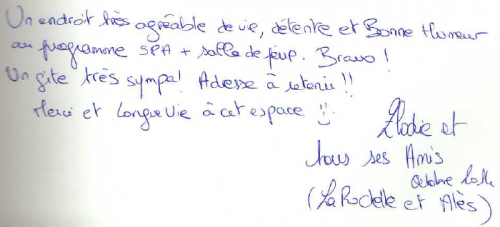 Un endroit très agréable de vie, détente et Bonne Humeur
au programme SPA + salle de jeux. Bravo !
Un gîte très sympa! Adesse à retenir !!
Merci et Longue Vie à cet espace !!
Elodie et
tous ses Amis
Octobre
(La Rochelle et Alès)